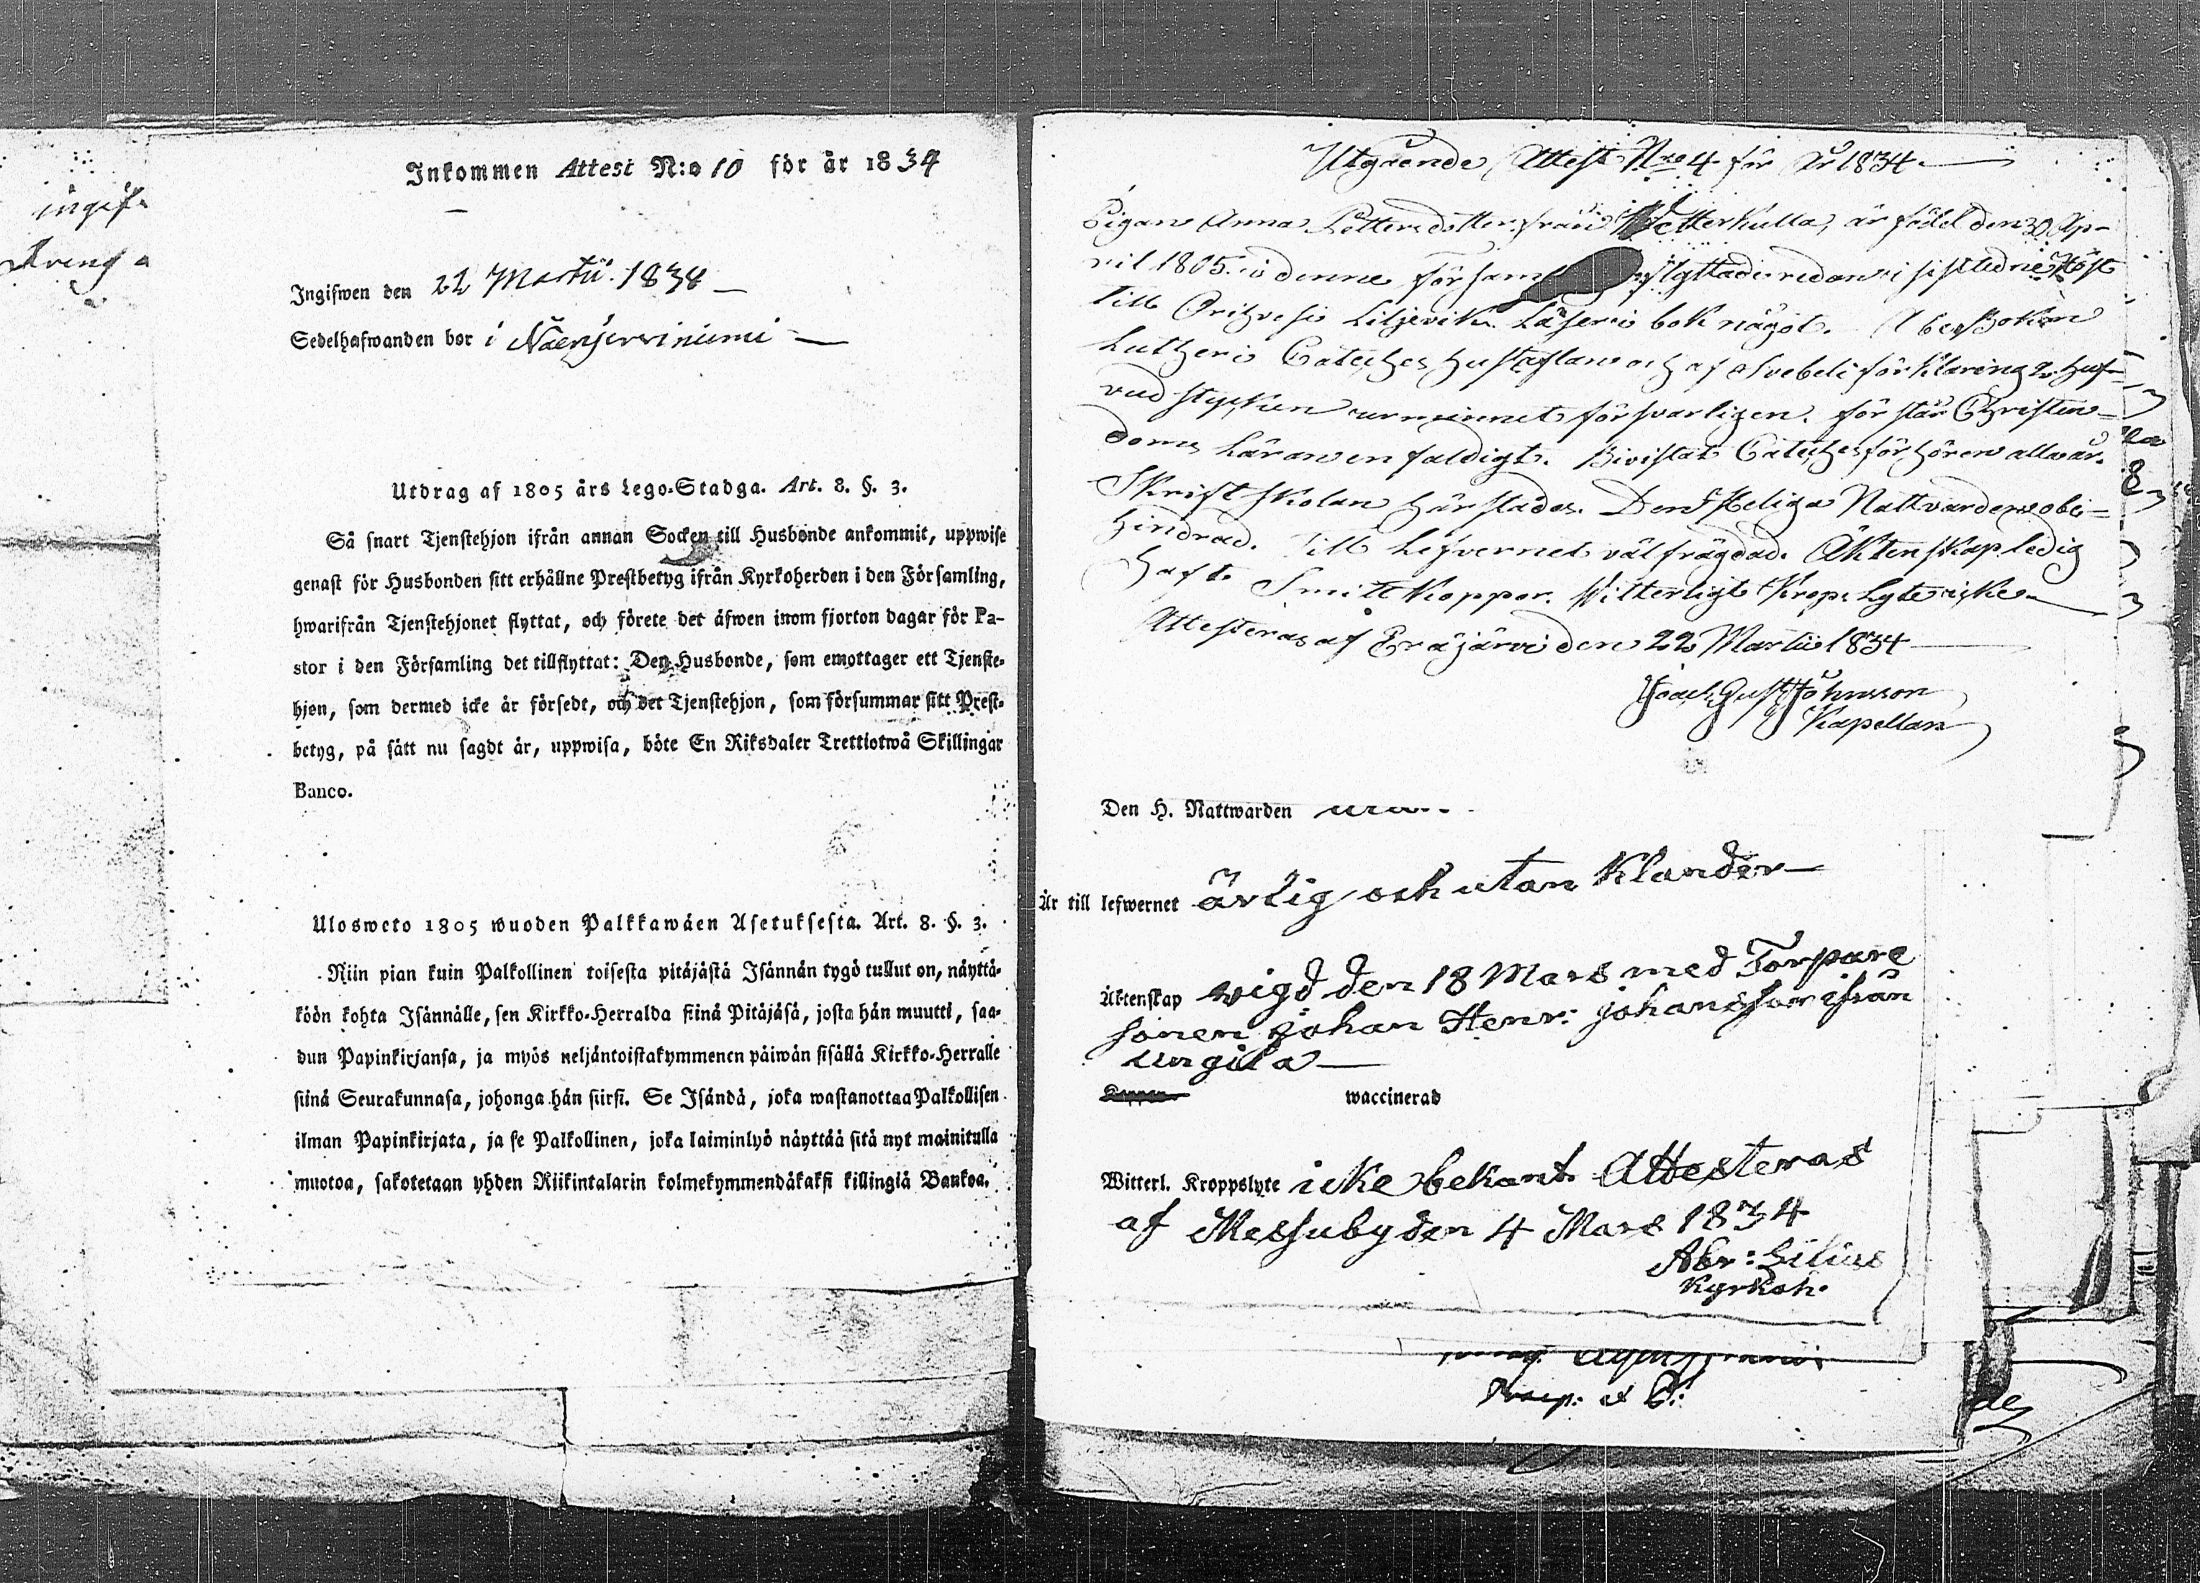 ingif.
Inkommen Attest N:o 10 för år 1834
Ingifwen den 22 Martii 1834
Sedelhafwanden bor i
Utdrag af 1805 års Lego-Stadga. Art. 8. §. 3.
Så snart Tjenstehjon ifrån annan Socken till Husbonde ankommit, uppwise
genast för Husbonden sitt erhållne Prestbetyg ifrån Kyrkoherden i den Församling,
hwarifrån Tjenstehjonet flyttat, och förete det äfwen inom fjorton dagar för Pa-
stor i den Församling det tillflyttat: Den Husbonde, som emottager ett Tjenste-
hjon, som dermed icke är försedt, och det Tjenstehjon, som försummar sitt Prest-
betyg, på sätt nu sagdt är, uppwisa, böte En Riksdaler Trettiotwå Skillingar
Banco.
Ulosweto 1805 wuoden Palkkawäen Asetuksesta. Art. 8. §. 3.
Niin pian kuin Palkollinen toisesta pitäjästä Isännän tygö tullut on, näyttä-
köön kohta Isännälle, sen Kirkko-Herralda siinä Pitäjäsä, josta hän muutti, saa-
dun Papinkirjansa, ja myös neljäntoistakymmenen päiwän sisällä Kirkko-Herralle
siinä Seurakunnasa, johonga hän siirsi. Se Isändä, joka wastanottaa Palkollisen
ilman Papinkirjata, ja se Palkollinen, joka laiminlyö näyttää sitä nyt mainitulla
muotoa, sakotetaan yhden Riikintalarin kolmekymmendäkaksi killingiä Bankoa.
Utgående Attest Nro 4 för År 1834
Pigan Anna Pettersdotter från Wetterkulla, är född den 30 Ap-
ril 1805 i denne försam flyttade redan i sistledne Höst
till Orihvesi Liljevik. Läser i bok något. Abc Boken
Lutheri Cateches Hustaflan och af Svebeli förklaring 2 huf-
vud stycken ur minnet försvarligen. förstår Christen-
doms läran enfaldigt. Bivistat Catechesförhören allvar.
Skriftskolan härstädes. Den Heliga Nattvarden obe-
hindrad. Till lefvernet välfrägdad. Äktenskap ledig
Haft Smittkoppor. Witterligt Krops Lyte icke
Attesteras af Eräjärvi den 22 Martii 1834
Joach. Gust. Johnsson
Kapellan
Den H. Nattwarden
Är till lefwernet ärlig och utan Klander
Äktenskap wigd den 18 Mars med Torpare
sonen Johan Henr: Johansson ifrån
Ungila
Koppor waccinerad
Witterl. Kroppslyte icke bekant Attesteras
af Messuby den 4 Mars 1834
Abr: Lilius
Kyrkoh.